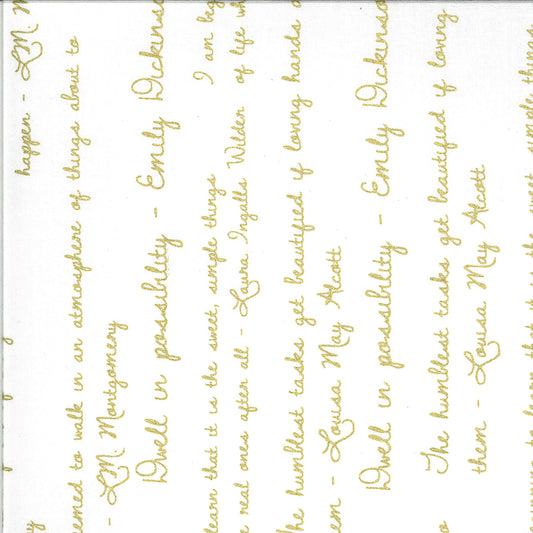 happen - L.M. M
emed to walk in an atmosphere of things about to
- L.M. Montgomery
Dwell in possibility - Emily Dickinso
I am beg
learn that it is the sweet, simple things
of life wh
e real ones after all - Laura Ingalls Wilder
he humblest tasks get beautified if loving hands
em - Louisa May Alcott
Dwell in possibility - Emily Dickinso
The humblest tasks get beautified if loving
them - Louisa May Alcott
learn that it is the sweet, simple things